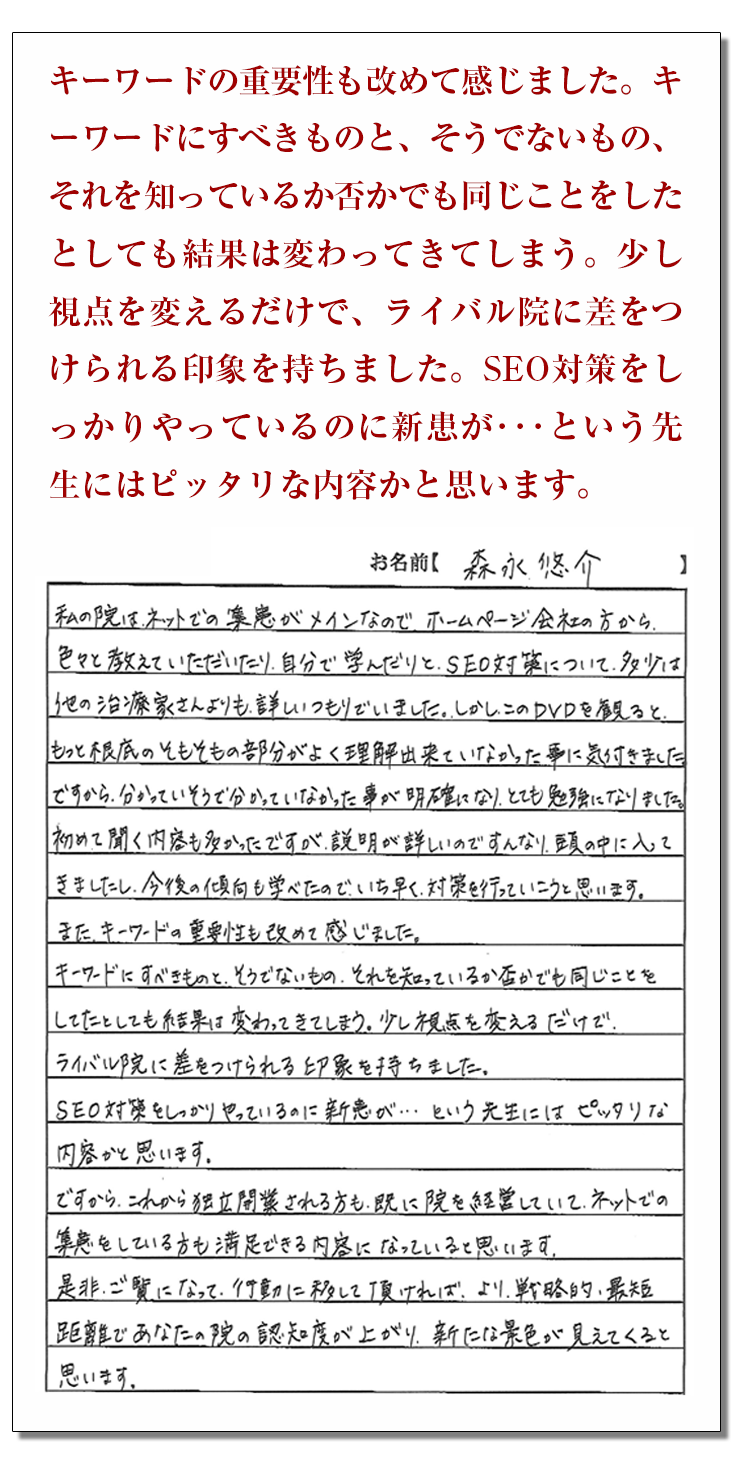 キーワードの重要性も改めて感じました。キ
ーワードにすべきものと、そうでないもの、
それを知っているか否かでも同じことをした
としても結果は変わってきてしまう。少し
視点を変えるだけで、ライバル院に差をつ
けられる印象を持ちました。SEO対策をし
っかりやっているのに新患が･･･という先
生にはピッタリな内容かと思います。
お名前【 森永悠介 】
私の院は、ネットでの集患がメインなので、ホームページ会社の方から、
色々と教えていただいたり、自分で学んだりと、SEO対策について、多少は
他の治療家さんよりも、詳しいつもりでいました。しかし、このDVDを観ると、
もっと根底のそもそもの部分がよく理解出来ていなかった事に気付きました
ですから、分かっていそうで分かっていなかった事が明確になり、とても勉強になりました。
初めて聞く内容も多かったですが、説明が詳しいのですんなり、頭の中に入って
きましたし、今後の傾向も学べたので、いち早く、対策を行っていこうと思います。
また、キーワードの重要性も改めて感じました。
キーワードにすべきものと、そうでないもの、それを知っているか否かでも同じことを
してたとしても結果は変わってきてしまう。少し視点を変えるだけで、
ライバル院に差をつけられる印象を持ちました。
SEO対策をしっかりやっているのに新患が…という先生にはピッタリな
内容かと思います。
ですから、これから独立開業される方も、既に院を経営していて、ネットでの
集患をしている方も満足できる内容になっていると思います。
是非、ご覧になって、行動に移して頂ければ、より、戦略的、最短
距離であなたの院の認知度が上がり、新たな景色が見えてくると
思います。